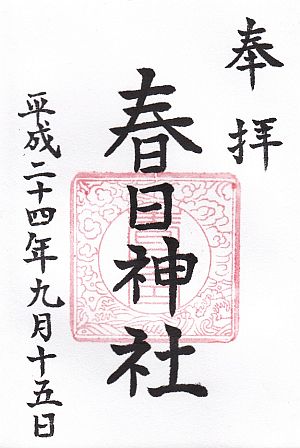 奉拝
春日神社
平成二十四年九月十五日